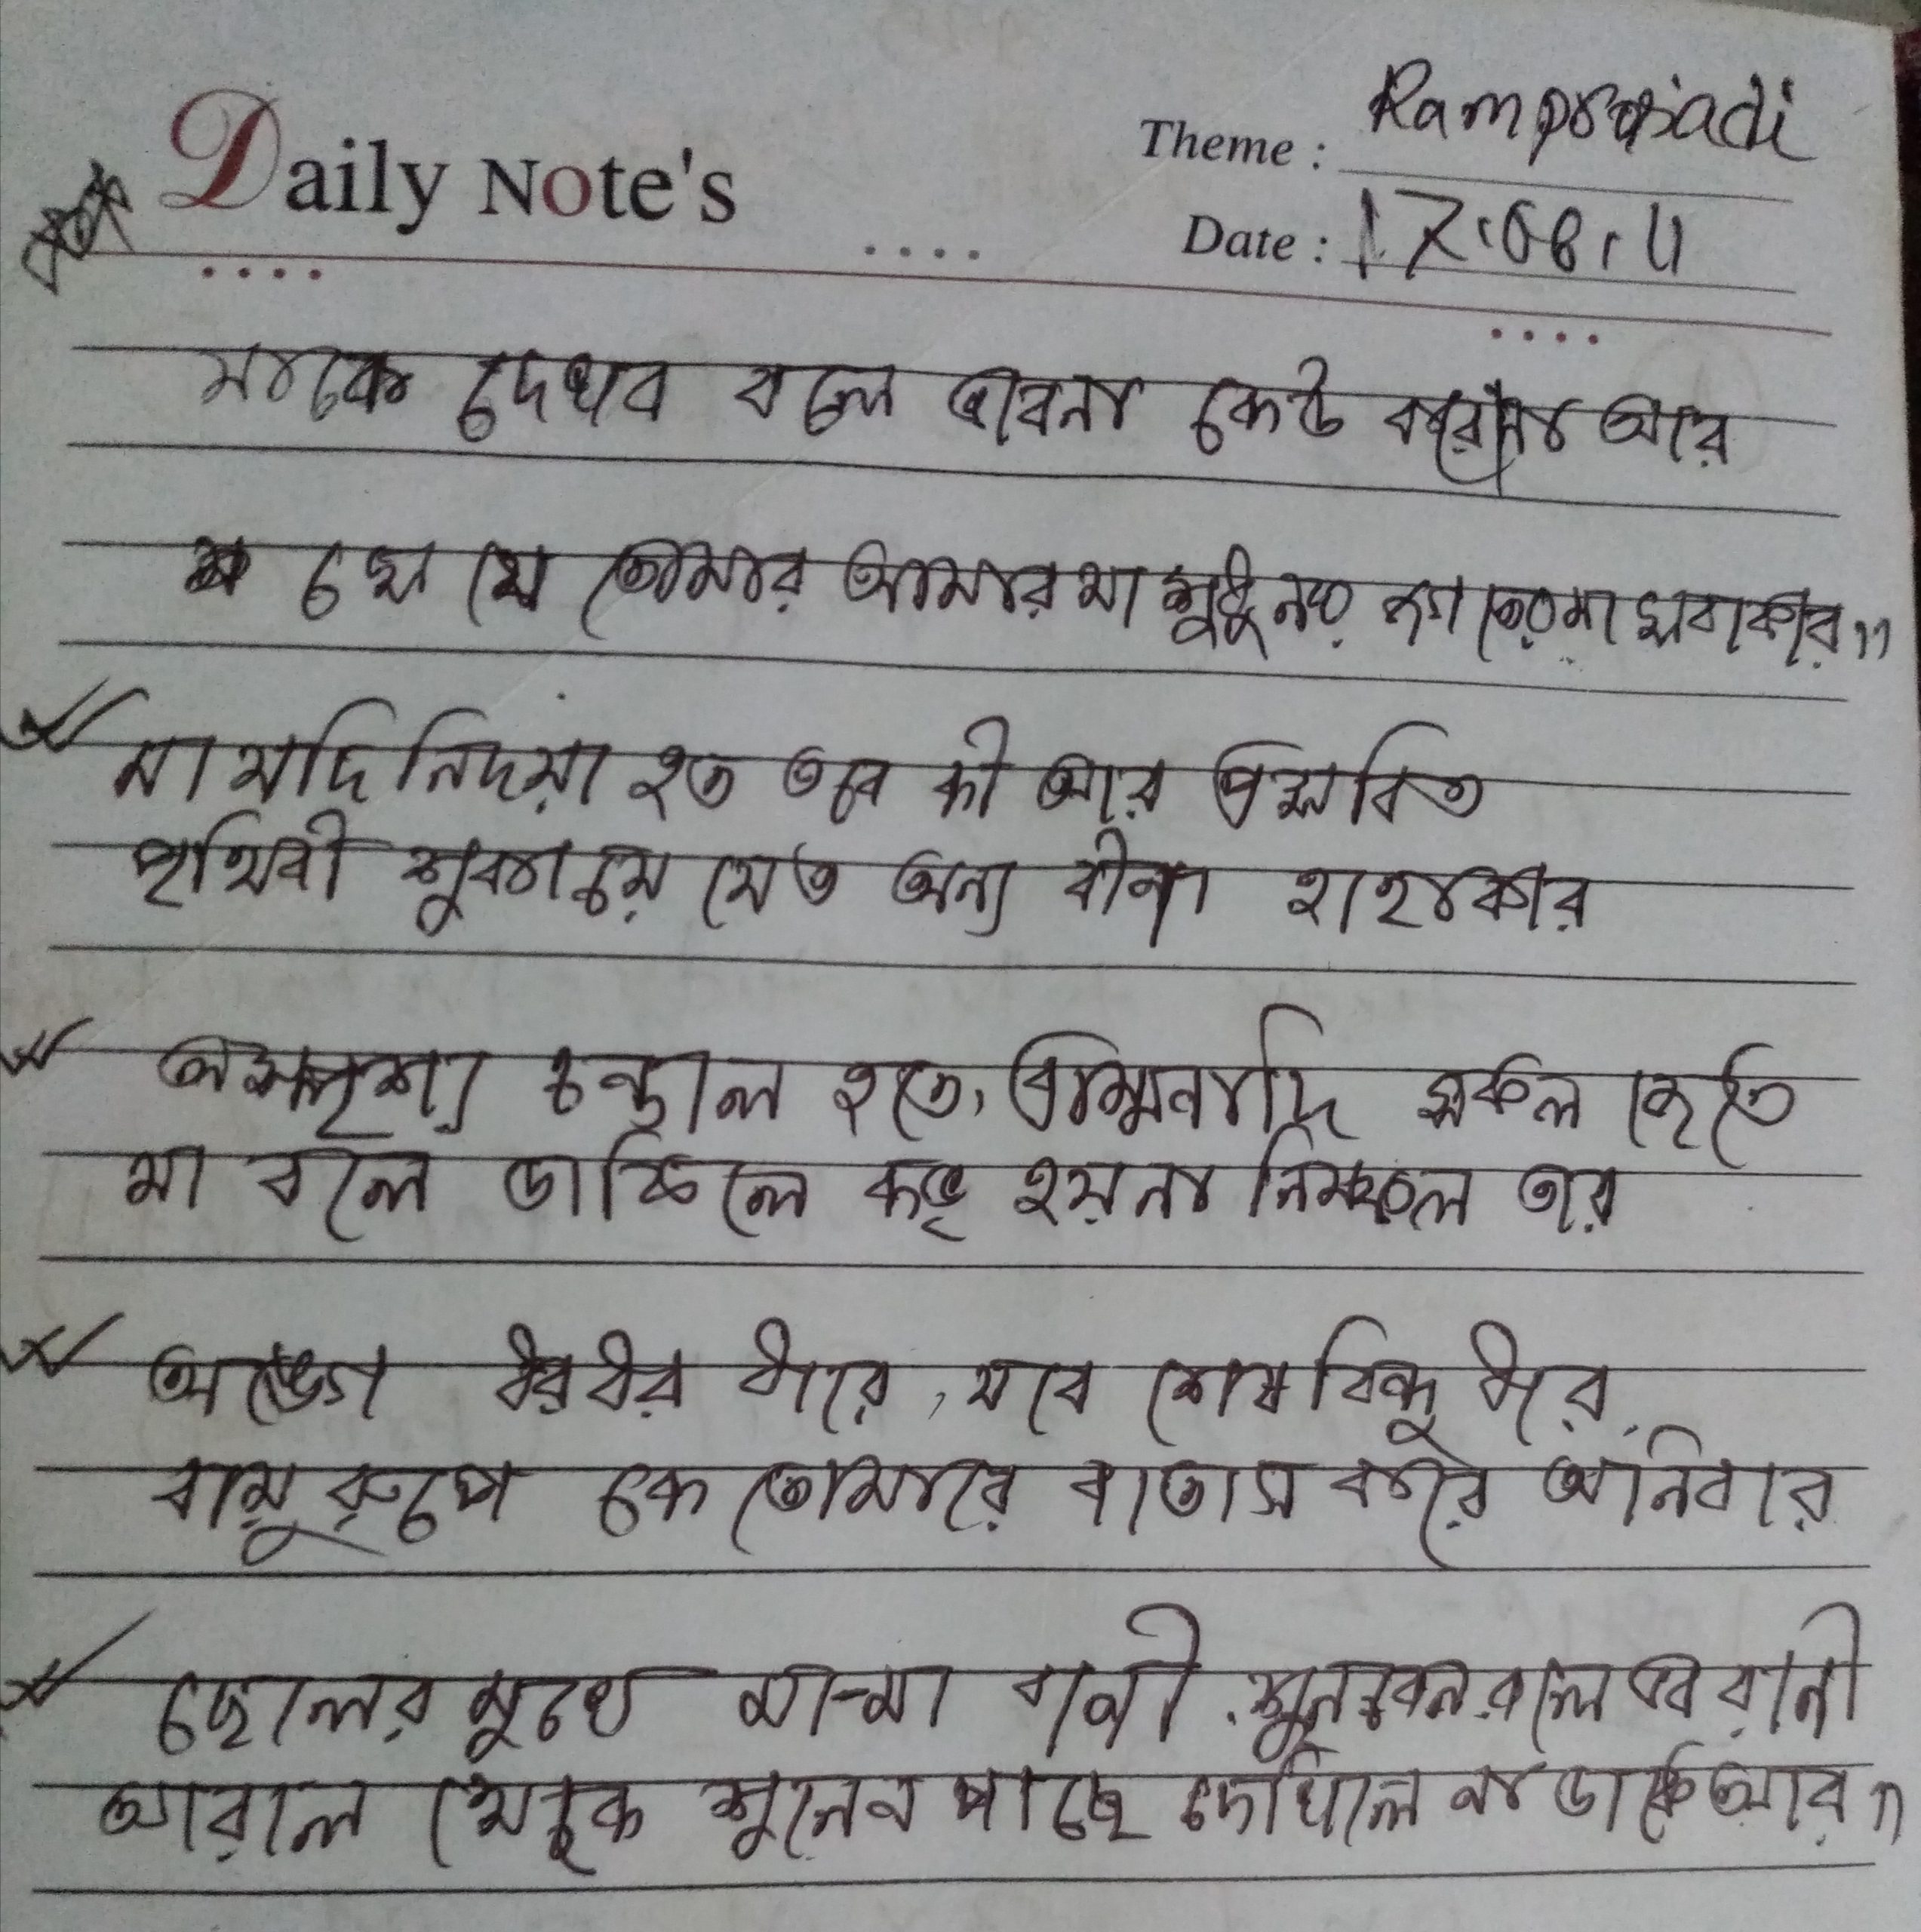 Daily Note's
Theme : Ramprasadi
Date : 17.08.11
মাকে দেখব বলে ভাবনা কেউ করোনা আর
সে যে তোমার আমার মা শুধু নয় জগতের মা সবাকার॥
মা যদি নিদয়া হত তবে কী আর প্রসবিত
পৃথিবী শুকায়ে যেত অন্য বীনা হাহাকার
অসপৃশ্য চন্ডাল হতে, ব্রাম্মনাদি সকল জেতে
মা বলে ডাকিলে কভু হয়না নিস্ফল তার
অঙ্গে ঝরঝর ঝরে, যবে শেষ বিন্দু নীর
বায়ু রুপে কে তোমারে বাতাস করে অনিবার
ছেলের মুখে মা-মা বানী শুনবেন বলে ভবরানী
আরালে থেকে শুনেন পাছে দেখিলে না ডাকে আর॥